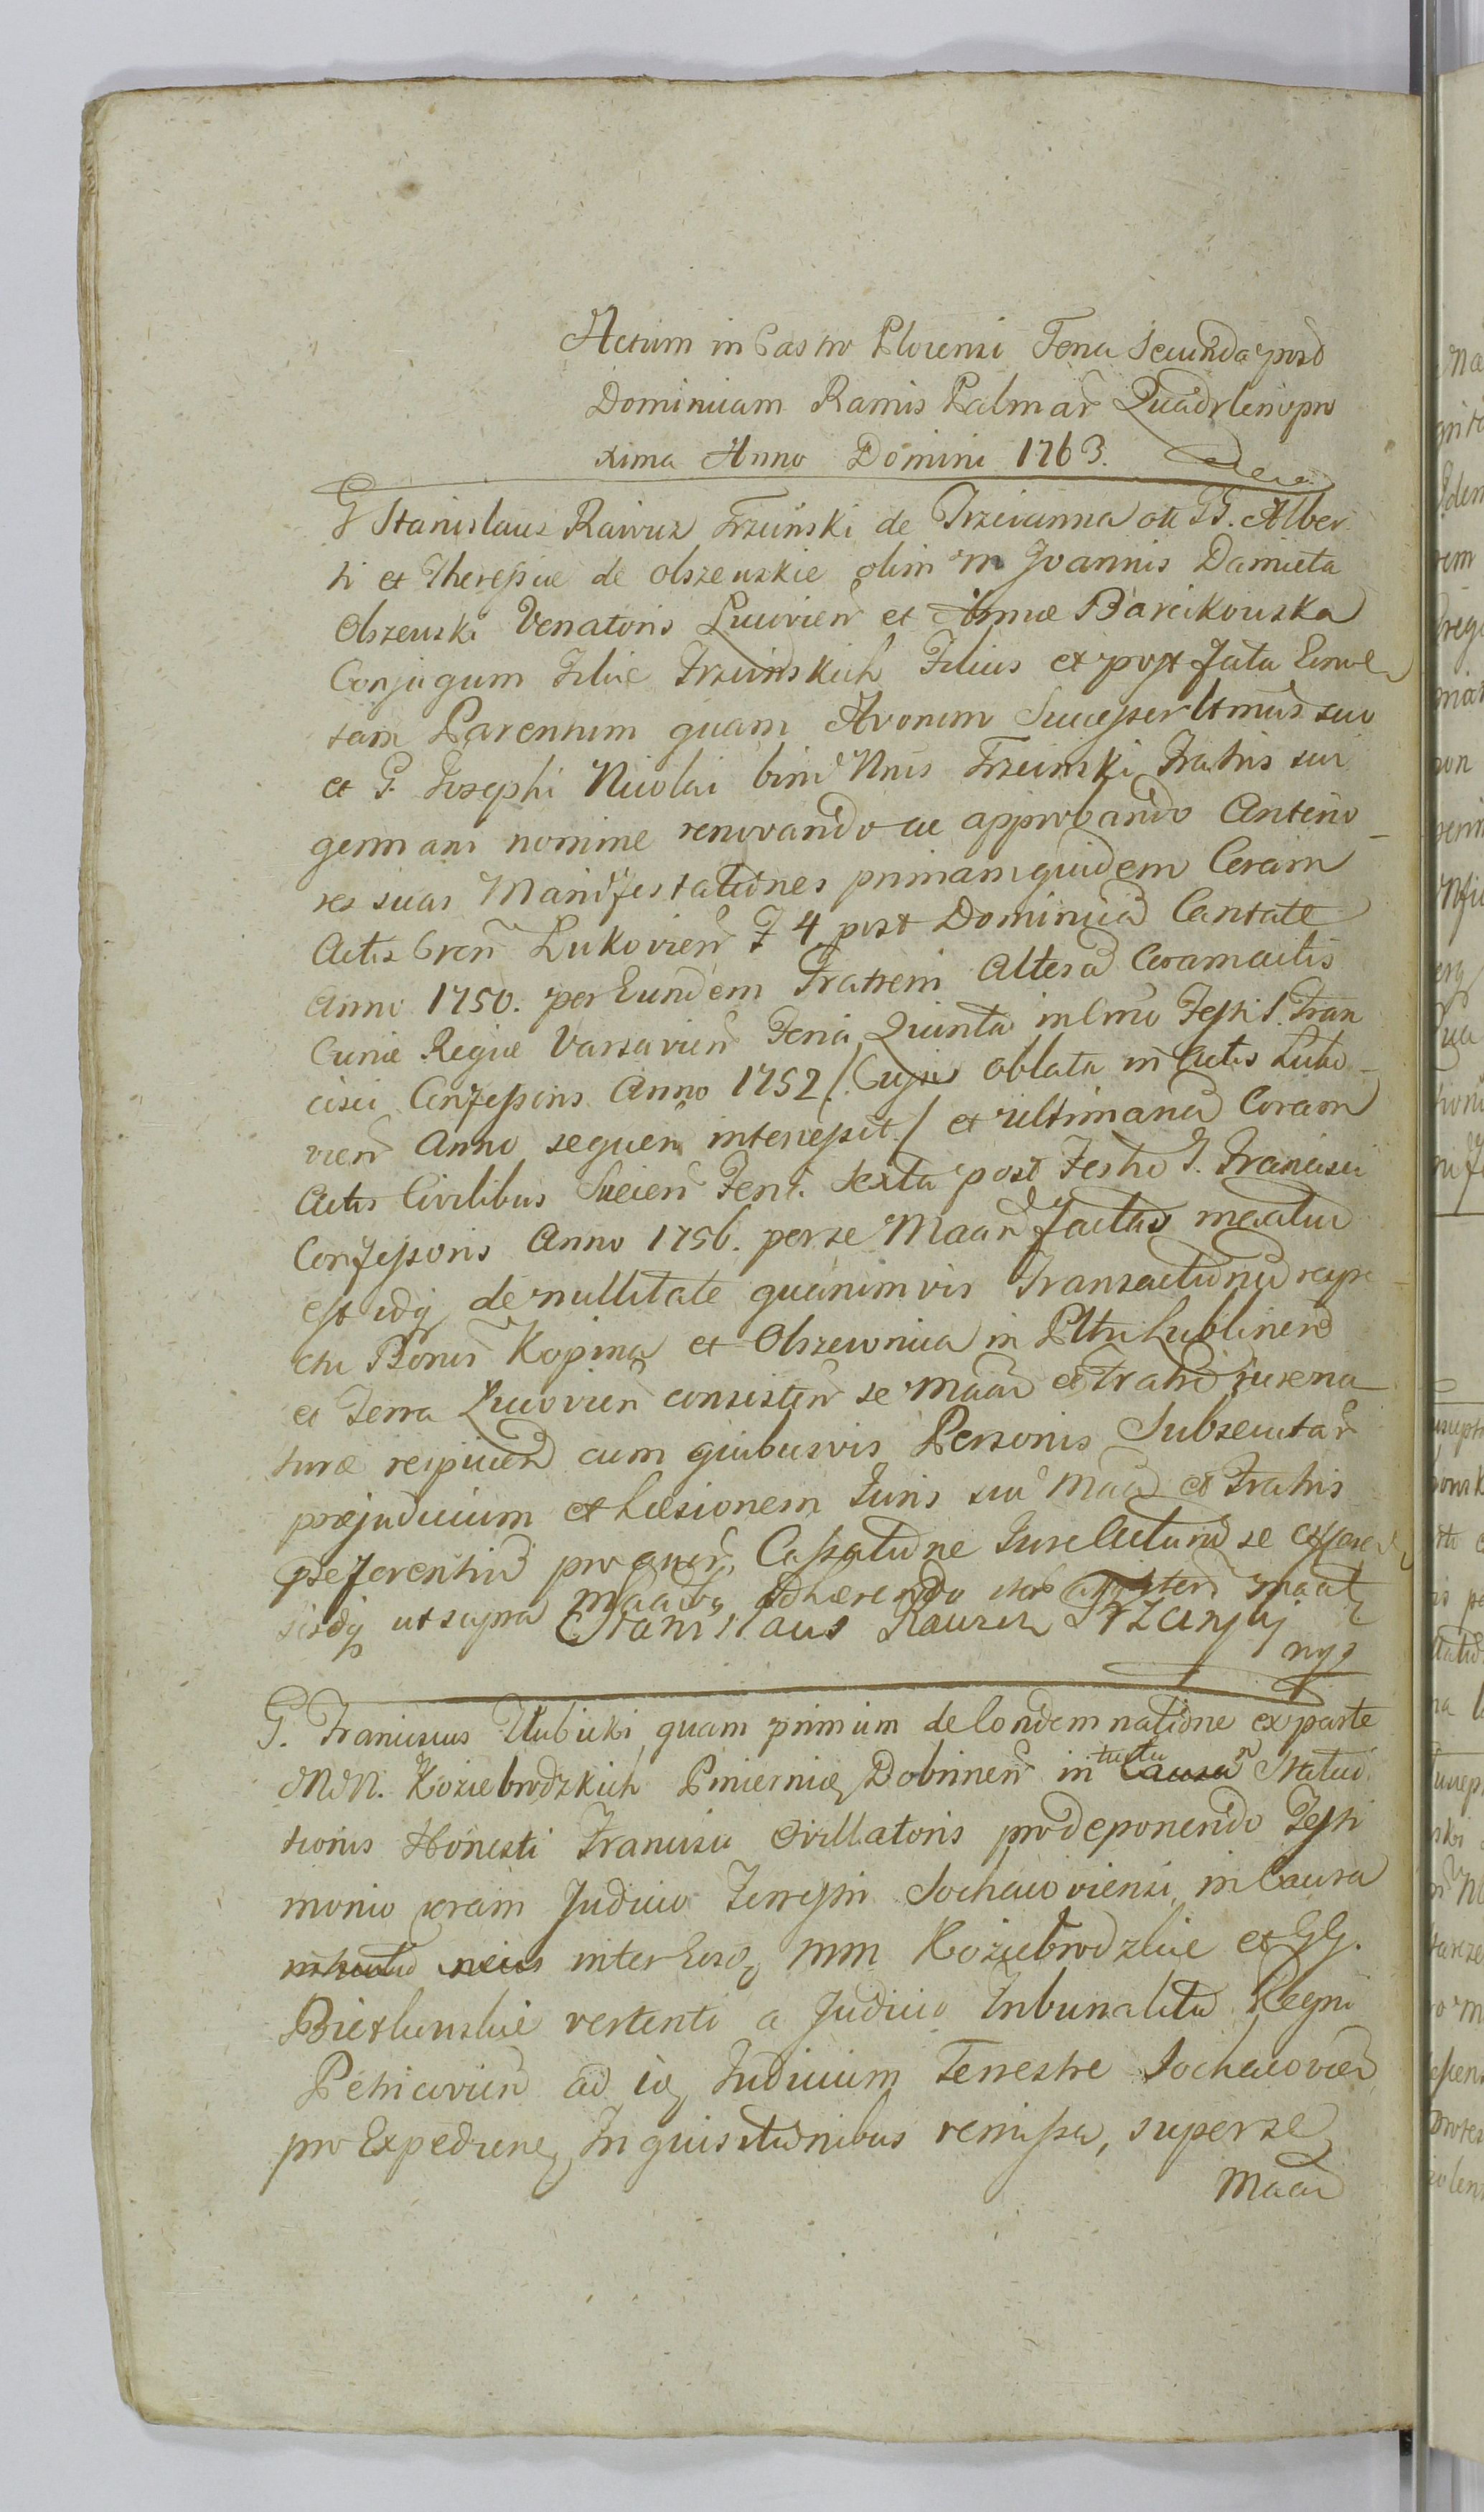 Actum in Castro Plocensi Feria Secunda post
Dominicam Ramis Palmar Quadrlenopro
xima Anno Domini 1763.
G Stanislaus Rawicz Trzcinski de Trzcianna oli G. Alber
ti et Theressiae de Olszewskie olim M Joannis Damieta
Olszewski Venatoris Lucovien et Annae Barcikowska
Conjugum Filiae Trzcinskich Filius et post fata Eorun
tam Parentum quam Avorum Successor Ltmus suo
et G. Josephi Nicolai bini Nnis Trzcinski Fratris sui
germani nomine renovando ac approbando Anterio-
res suas Manifestationes primam quidem Coram
Actis Cren Lukovien F 4 post Dominica Cantate
Anno 1750. per Eundem Fratrem Altera Coram actis
Curiae Regiae Varsavien Feria Quinta in Crno Festi S. Fran
cisci Confessoris Anno 1752 /. Cujus oblata in Actis Luko-
vien Anno sequen intercessit / et ultimana Coram
Actis Civilibus Siecien Feri. Sexta post Festu S. Francisci
Confessoris Anno 1756. per se Maan factas maatur
est idq de nullitate quarumvis Transactionu respe-
ctu Bonor Kopina et Olszewnica in Pltu Lublinen
et Terra Lucovien consisten se Maan et Fratre
turae reipicien cum quibusvis Personis Subsecutar
praejudicium et Laesionem Juris sui Maan et Fratris
praeferentiu pro quar Cassatione Jure Acturu se
sisdq ut supra Maanbq adhaerendo maat
Stanislaus Rawicz Trzcinskj
mpp
G. Franciscus Ulubicki quam primum de Condemnatione ex parte
MM. Koziebrodzkich Pincerniae Dobrinen in tuitu Causa Statui
tionis Honesti Francisci Civillatoris pro deponendo Testi
monio coram Judicio Terrestri Sochacoviensi in Causa
inter Eosdq MM Koziebrodzkie et GG.
Bierlunskie vertenti a Judicio Tribunalitio Regni
Petricovien ad idq Judicium Terrestre Sochacovien
pro Expediene Inquisitionibus remissa, super se
Maan